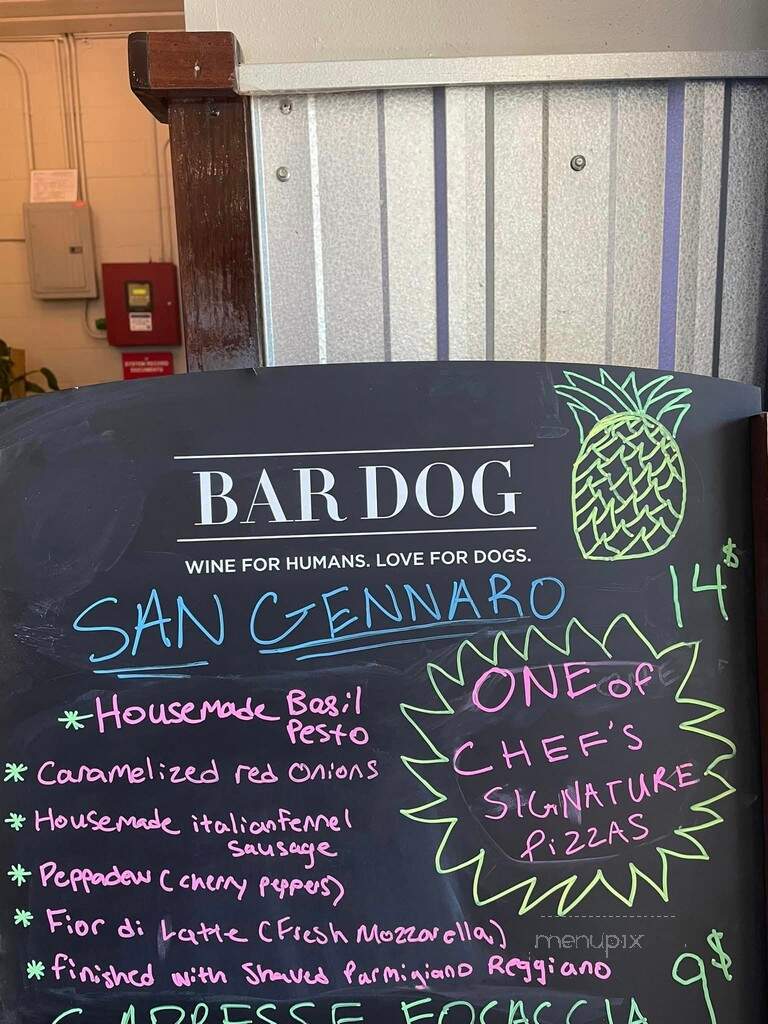 BAR DOG
WINE FOR HUMANS. LOVE FOR DOGS.
SAN GENNARO
14$
* Housemade Basil
Pesto
* Caramelized red onions
* Housemade italian fennel
sausage
* Peppadew (cherry peppers)
* Fior di Latte (Fresh Mozzarella)
* finished with Shaved Parmigiano Reggiano
ONE of
CHEF'S
SIGNATURE
PIZZAS
menupix
9$
CAPRESSE FOCACCIA